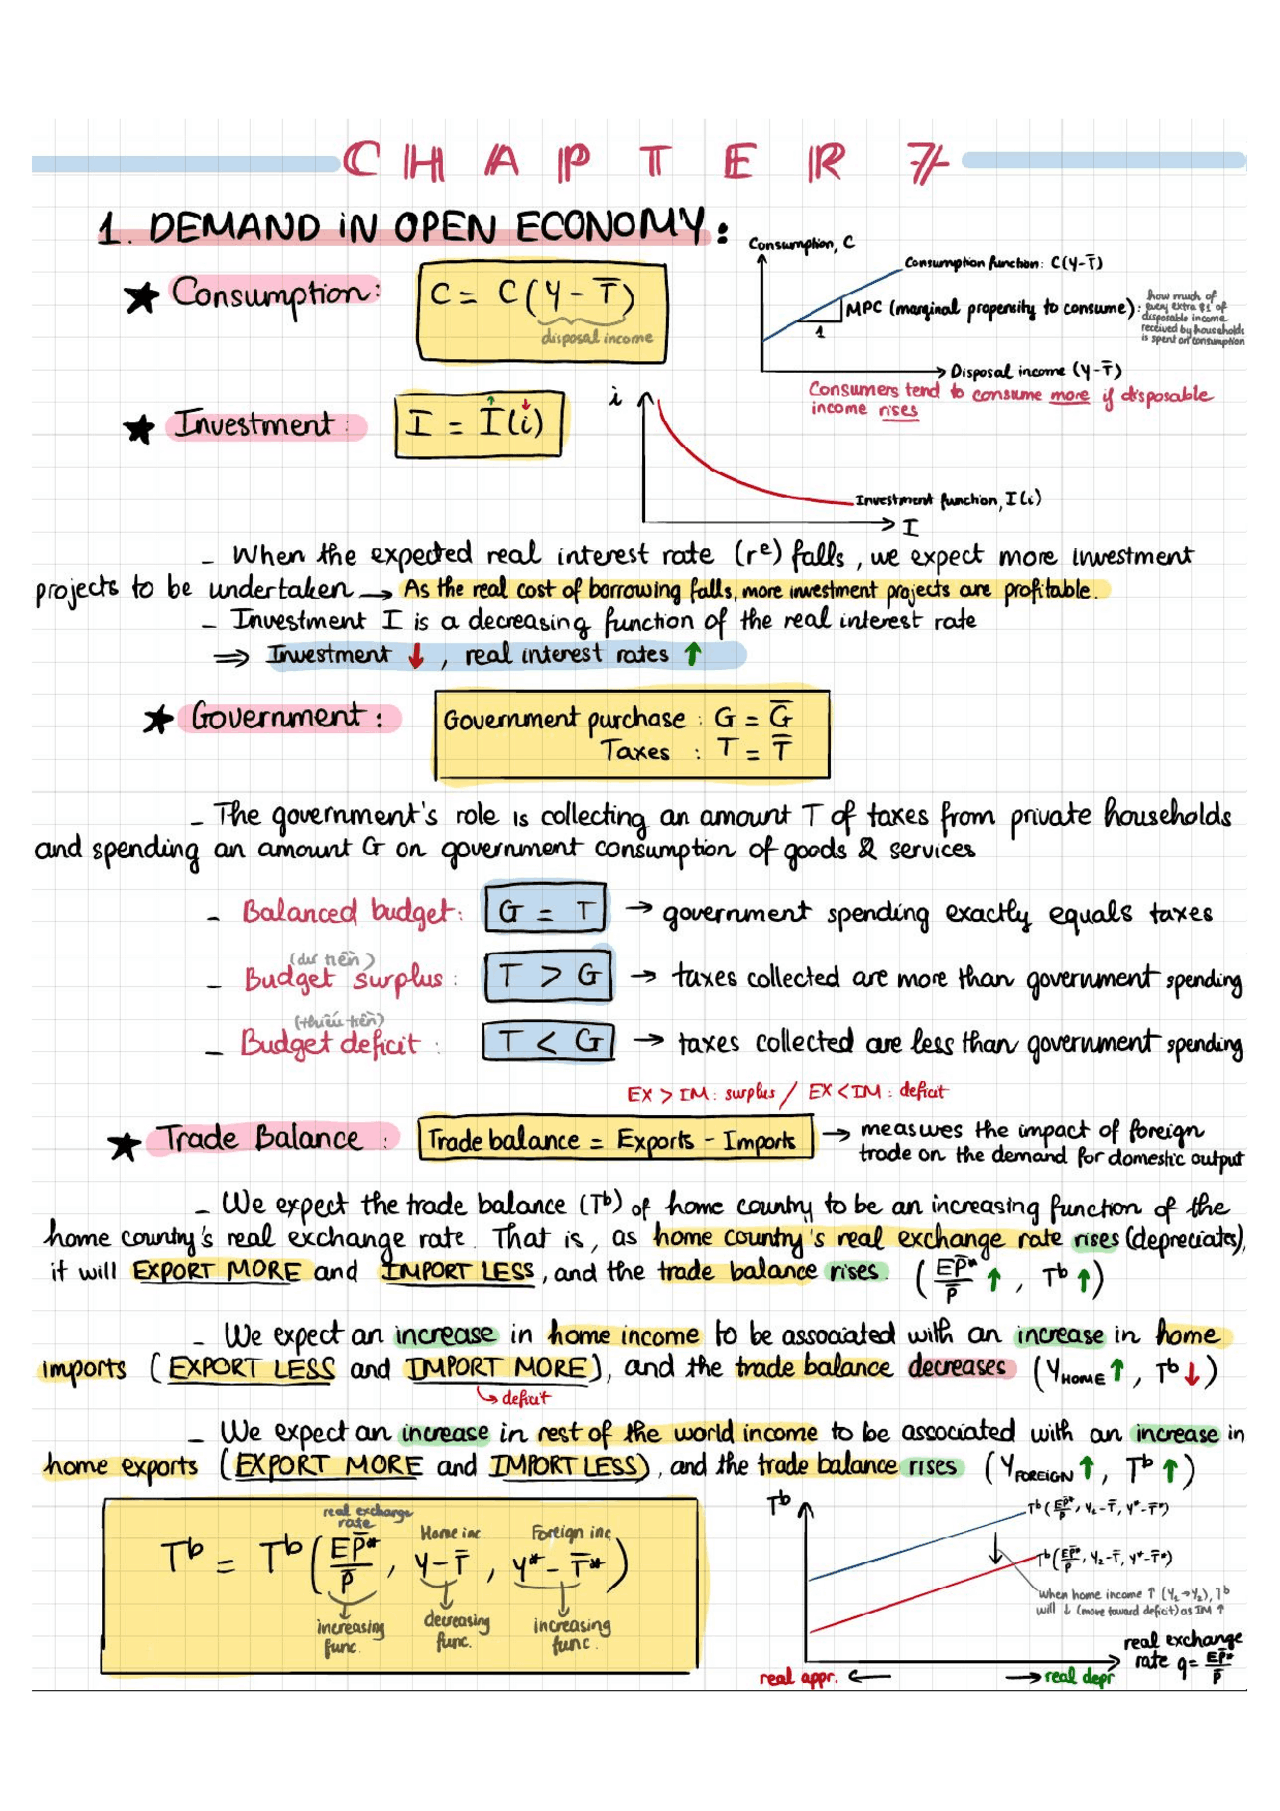 CHAPTER 7
1. DEMAND IN OPEN ECONOMY:
★ Consumption:
C = C(Y - T̅)
disposal income
Consumption, C
Consumption function: C(Y-T̅)
MPC (marginal propensity to consume):
how much of
every extra $1 of
disposable income
received by households
is spent on consumption
1
Disposal income (Y-T̅)
Consumers tend to consume more if disposable
income rises
★ Investment:
I = I(i)
↑ ↓
i
Investment function, I(i)
I
- When the expected real interest rate (rᵉ) falls, we expect more investment
projects to be undertaken → As the real cost of borrowing falls, more investment projects are profitable.
- Investment I is a decreasing function of the real interest rate
⇒ Investment ↓, real interest rates ↑
★ Government:
Government purchase : G = G̅
Taxes : T = T̅
- The government's role is collecting an amount T of taxes from private households
and spending an amount G on government consumption of goods & services
- Balanced budget: G = T → government spending exactly equals taxes
(dư tiền)
- Budget surplus: T > G → taxes collected are more than government spending
(thiếu tiền)
- Budget deficit: T < G → taxes collected are less than government spending
EX > IM: surplus / EX < IM: deficit
★ Trade Balance: Trade balance = Exports - Imports → measures the impact of foreign
trade on the demand for domestic output
- We expect the trade balance (Tᵇ) of home country to be an increasing function of the
home country's real exchange rate. That is, as home country's real exchange rate rises (depreciates),
it will EXPORT MORE and IMPORT LESS, and the trade balance rises. (EP̅*/P̅ ↑, Tᵇ ↑)
- We expect an increase in home income to be associated with an increase in home
imports (EXPORT LESS and IMPORT MORE), and the trade balance decreases (Y HOME ↑, Tᵇ ↓)
↳ deficit
- We expect an increase in rest of the world income to be associated with an increase in
home exports (EXPORT MORE and IMPORT LESS), and the trade balance rises (Y FOREIGN ↑, Tᵇ ↑)
real exchange
rate
Home inc
Foreign inc
Tᵇ = Tᵇ(EP̅*/P̅, Y-T̅, Y*-T̅*)
increasing
func.
decreasing
func.
increasing
func.
Tᵇ
Tᵇ(EP̅*/P̅, Y₁-T̅, Y*-T̅*)
Tᵇ(EP̅*/P̅, Y₂-T̅, Y*-T̅*)
When home income ↑ (Y₁→Y₂), Tᵇ
will ↓ (move toward deficit) as IM ↑
real exchange
rate q = EP̅*/P̅
real appr. ←
→ real depr